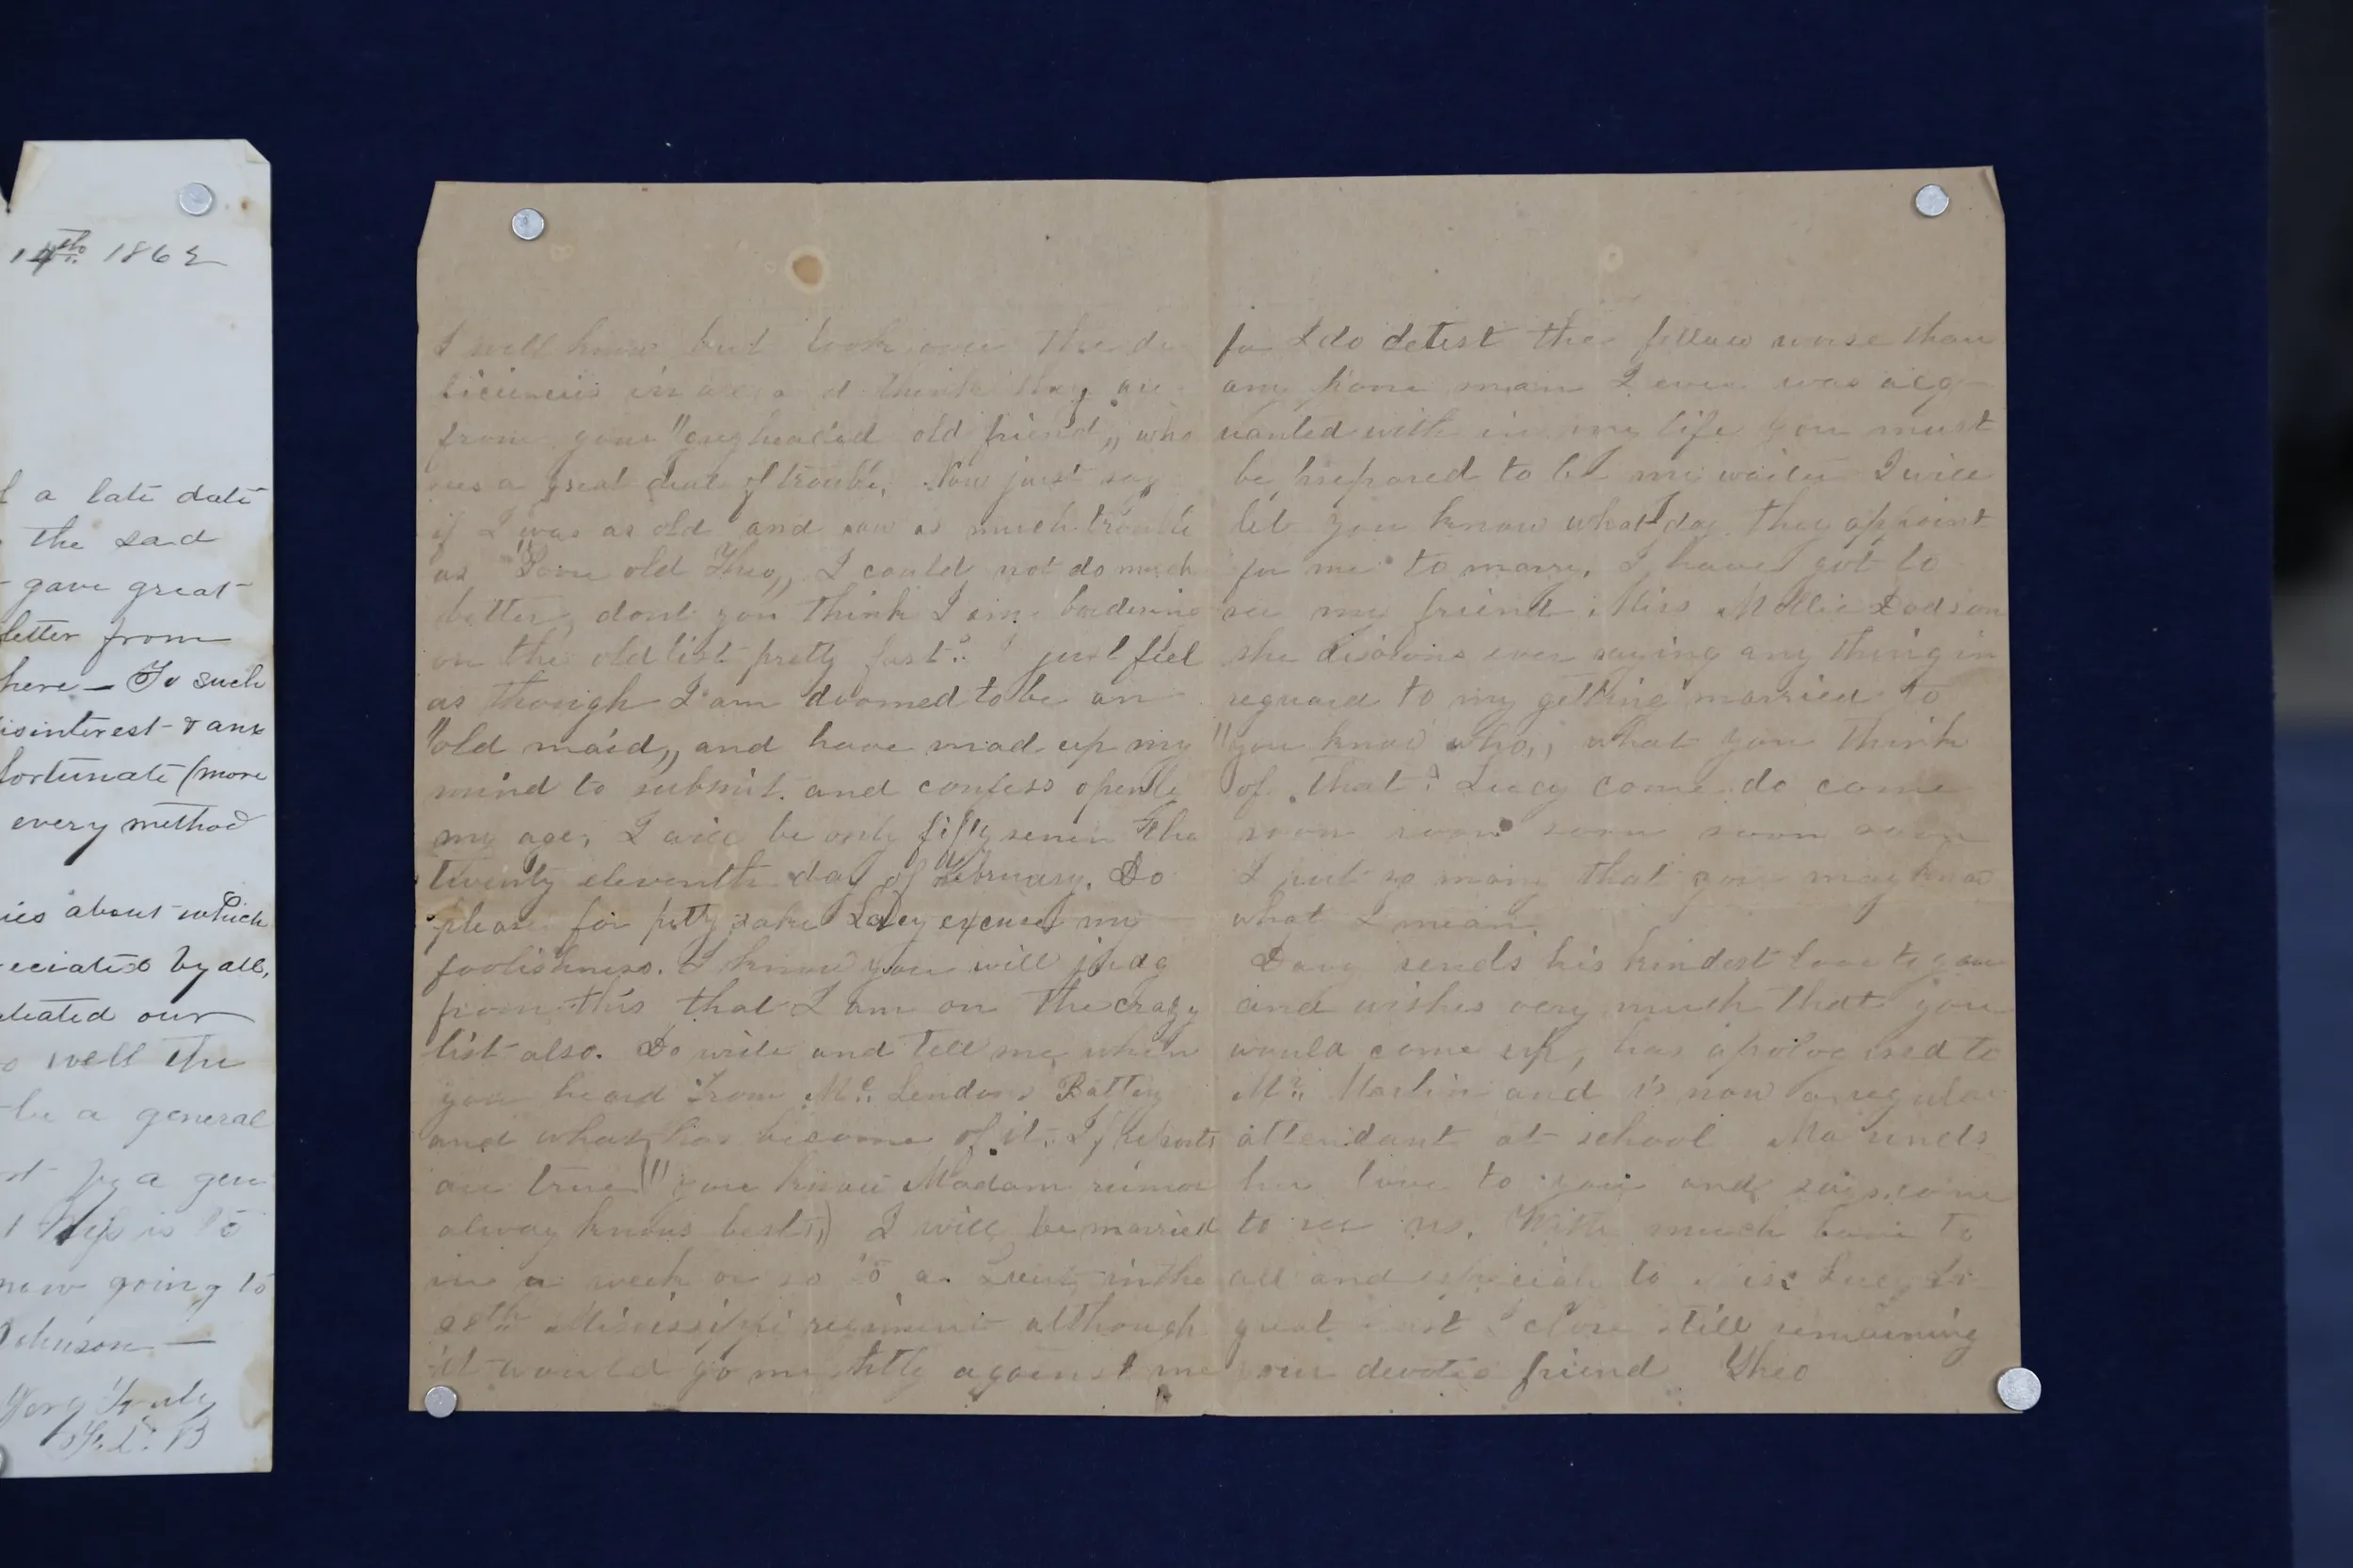 14th 1862
a late date
the sad
gave great
letter from
here — To such
isinterest & anx
fortunate (more
every method
ies about which
eciated by all,
our
well the
be a general
a gen
is to
now going to
Johnson —
Very truly
I well know but look over the de
ficiencies in and think they are
from your "greyheaded old friend,, who
sees a great deal of trouble, Now just say
if I was as old and saw as much trouble
as "Poor old Theo,, I could not do much
better, dont you think I am bordering
on the old list pretty fast? I just feel
as though I am doomed to be an
"old maid,, and have mad up my
mind to submit and confess openly
my age, I will be only fifty seven the
twenty eleventh day of February. Do
please for pitty sake Lucy excuse my
foolishness. I know you will judg
from this that I am on the crazy
list also. Do write and tell me when
you heard from Mc. Lendons Battery
and what has become of it. If reports
are true ("you know Madam rumor
alway knows best,,) I will be married
in a week or so to a Lieut, in the
28th Mississippi regiment although
it would go mightily against me
for I do detest the fellow worse than
any pore man I ever was acq
uanted with in my life you must
be prepared to be my waiter I will
let you know what day they appoint
for me to marry, I have got to
see my friend Miss Mollie Dodson
she disowns ever saying any thing in
reguard to my getting married to
"you know who,, what you think
of that? Lucy come do come
soon soon soon soon soon
I put so many that you may know
what I mean.
Davy sends his kindest love to you
and wishes very much that you
would come up, has apologised to
Mr. Martin and is now a regular
attendant at school Ma sends
her love to you and says come
to see us. With much love to
all and especialy to Miss Lucy
great still remaining
your devoted friend Theo